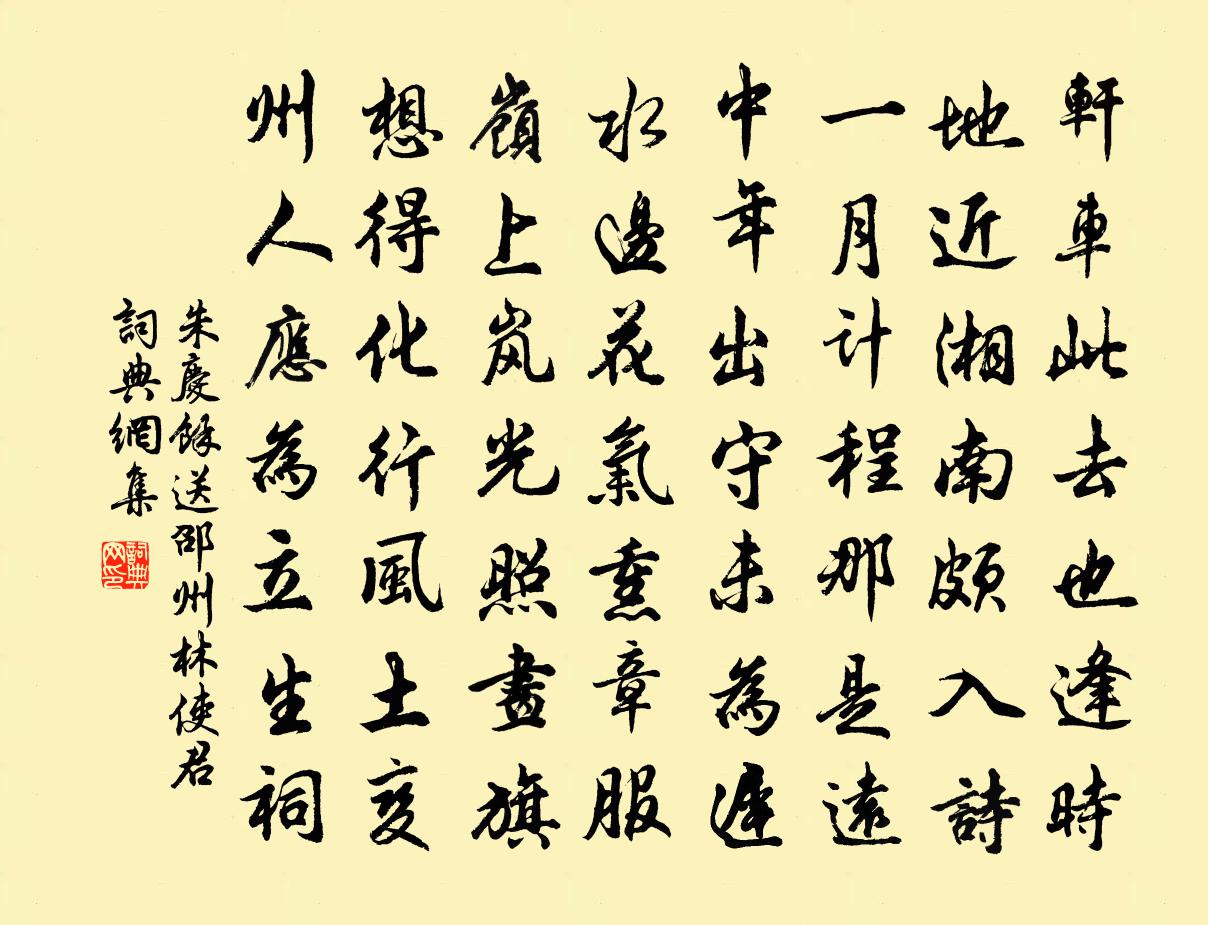 軒車此去也逢時
地近湘南頗入詩
一月計程那是遠
中年出守未為遲
水邊花氣熏章服
嶺上岚光照畫旗
想得化行風土变
州人應為立生祠
朱慶餘送邵州林使君
詞典網集
詞典网印